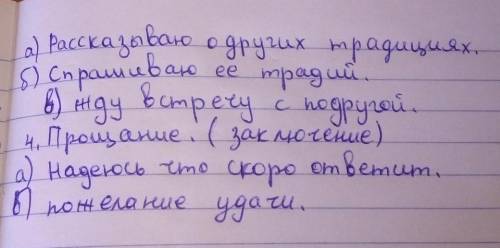 а) Рассказываю о других традициях.
б) Спрашиваю ее традий.
в) жду встречу с подругой.
4. Прощание. (заключение)
а) Надеюсь что скоро ответит.
б) пожелание удачи.